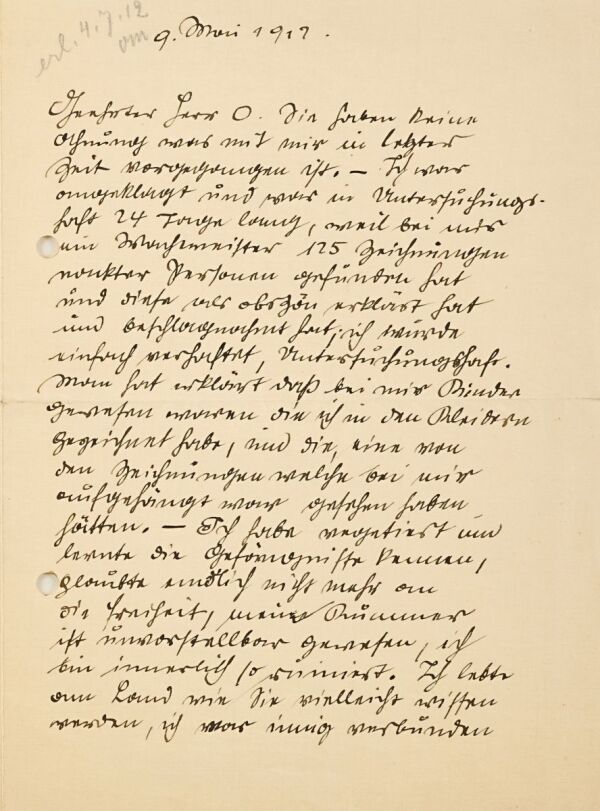 erl. 4.7.12
am
9. Mai 1912.
Geehrter Herr O. Sie haben keine
Ahnung was mit mir in letzter
Zeit vorgegangen ist. – Ich war
angeklagt und war in Untersuchungs-
haft 24 Tage lang, weil bei mir
ein Wachmeister 125 Zeichnungen
nackter Personen gefunden hat
und diese als obszön erklärt hat
und beschlagnahmt hat; ich wurde
einfach verhaftet, Untersuchungshaft.
Man hat erklärt daß bei mir Kinder
gewesen waren die ich in den Kleidern
gezeichnet habe, und die, eine von
den Zeichnungen welche bei mir
aufgehängt war gesehen haben
hätten. – Ich habe vegetiert und
lernte die Gefängnisse kennen,
glaubte endlich nicht mehr an
die Freiheit, mein Kummer
ist unvorstellbar gewesen, ich
bin innerlich so ruiniert. Ich lebte
am Land wie Sie vielleicht wissen
werden, ich war innig verbunden